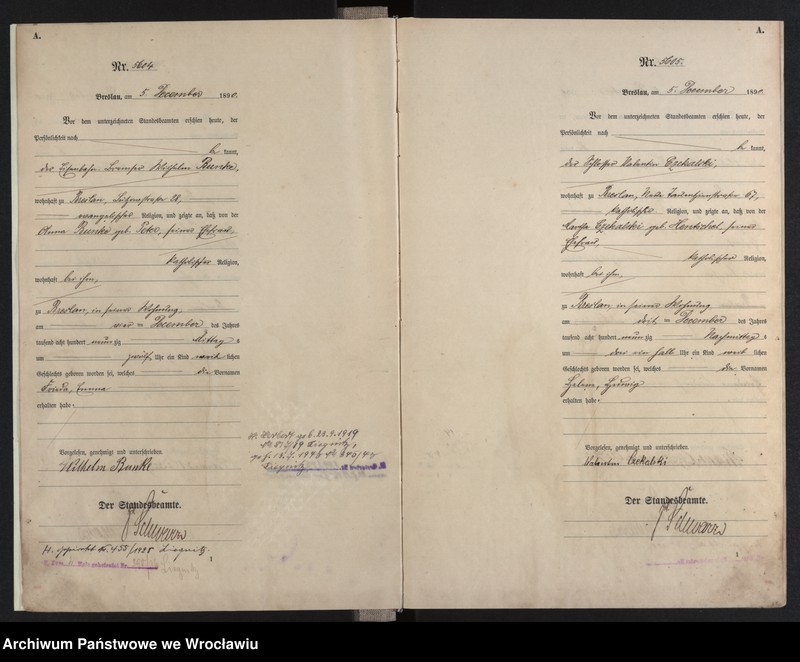 A.
Nr. 5604
Breslau, am 5. December 1890.
Vor dem unterzeichneten Standesbeamten erschien heute, der
Persönlichkeit nach
kannt,
der Eisenbahn Bremser Wilhelm Runke,
wohnhaft zu Breslau,
evangelischer Religion, und zeigte an, daß von der
Anna Runke geb. seiner Ehefrau,
katholischer Religion,
wohnhaft bei ihm,
zu Breslau, in seiner Wohnung,
am vier = December des Jahres
tausend acht hundert neunzig Mittag s
um zwölf Uhr ein Kind weib lichen
Geschlechts geboren worden sei, welches die Vornamen
Frieda, Emma
erhalten habe.
Vorgelesen, genehmigt und unterschrieben.
Wilhelm Runke
Der Standesbeamte.
Schwarz
455/1928 Liegnitz.
geb. 22.9.1919
Liegnitz,
Liegnitz
A.
Nr. 5605.
Breslau, am 5. December 1890.
Vor dem unterzeichneten Standesbeamten erschien heute, der
Persönlichkeit nach
kannt,
der Schlosser Valentin Czekalski,
wohnhaft zu Breslau, Neue Tauentzienstraße 67,
katholischer Religion, und zeigte an, daß von der
Martha Czekalski geb. Hentschel, seiner
Ehefrau,
katholischer Religion,
wohnhaft bei ihm,
zu Breslau in seiner Wohnung
am drei = December des Jahres
tausend acht hundert neunzig Nachmittag s
um drei ein halb Uhr ein Kind weib lichen
Geschlechts geboren worden sei, welches die Vornamen
Helene, Hedwig
erhalten habe.
Vorgelesen, genehmigt und unterschrieben.
Valentin Czekalski
Der Standesbeamte.
Schwarz
Archiwum Państwowe we Wrocławiu